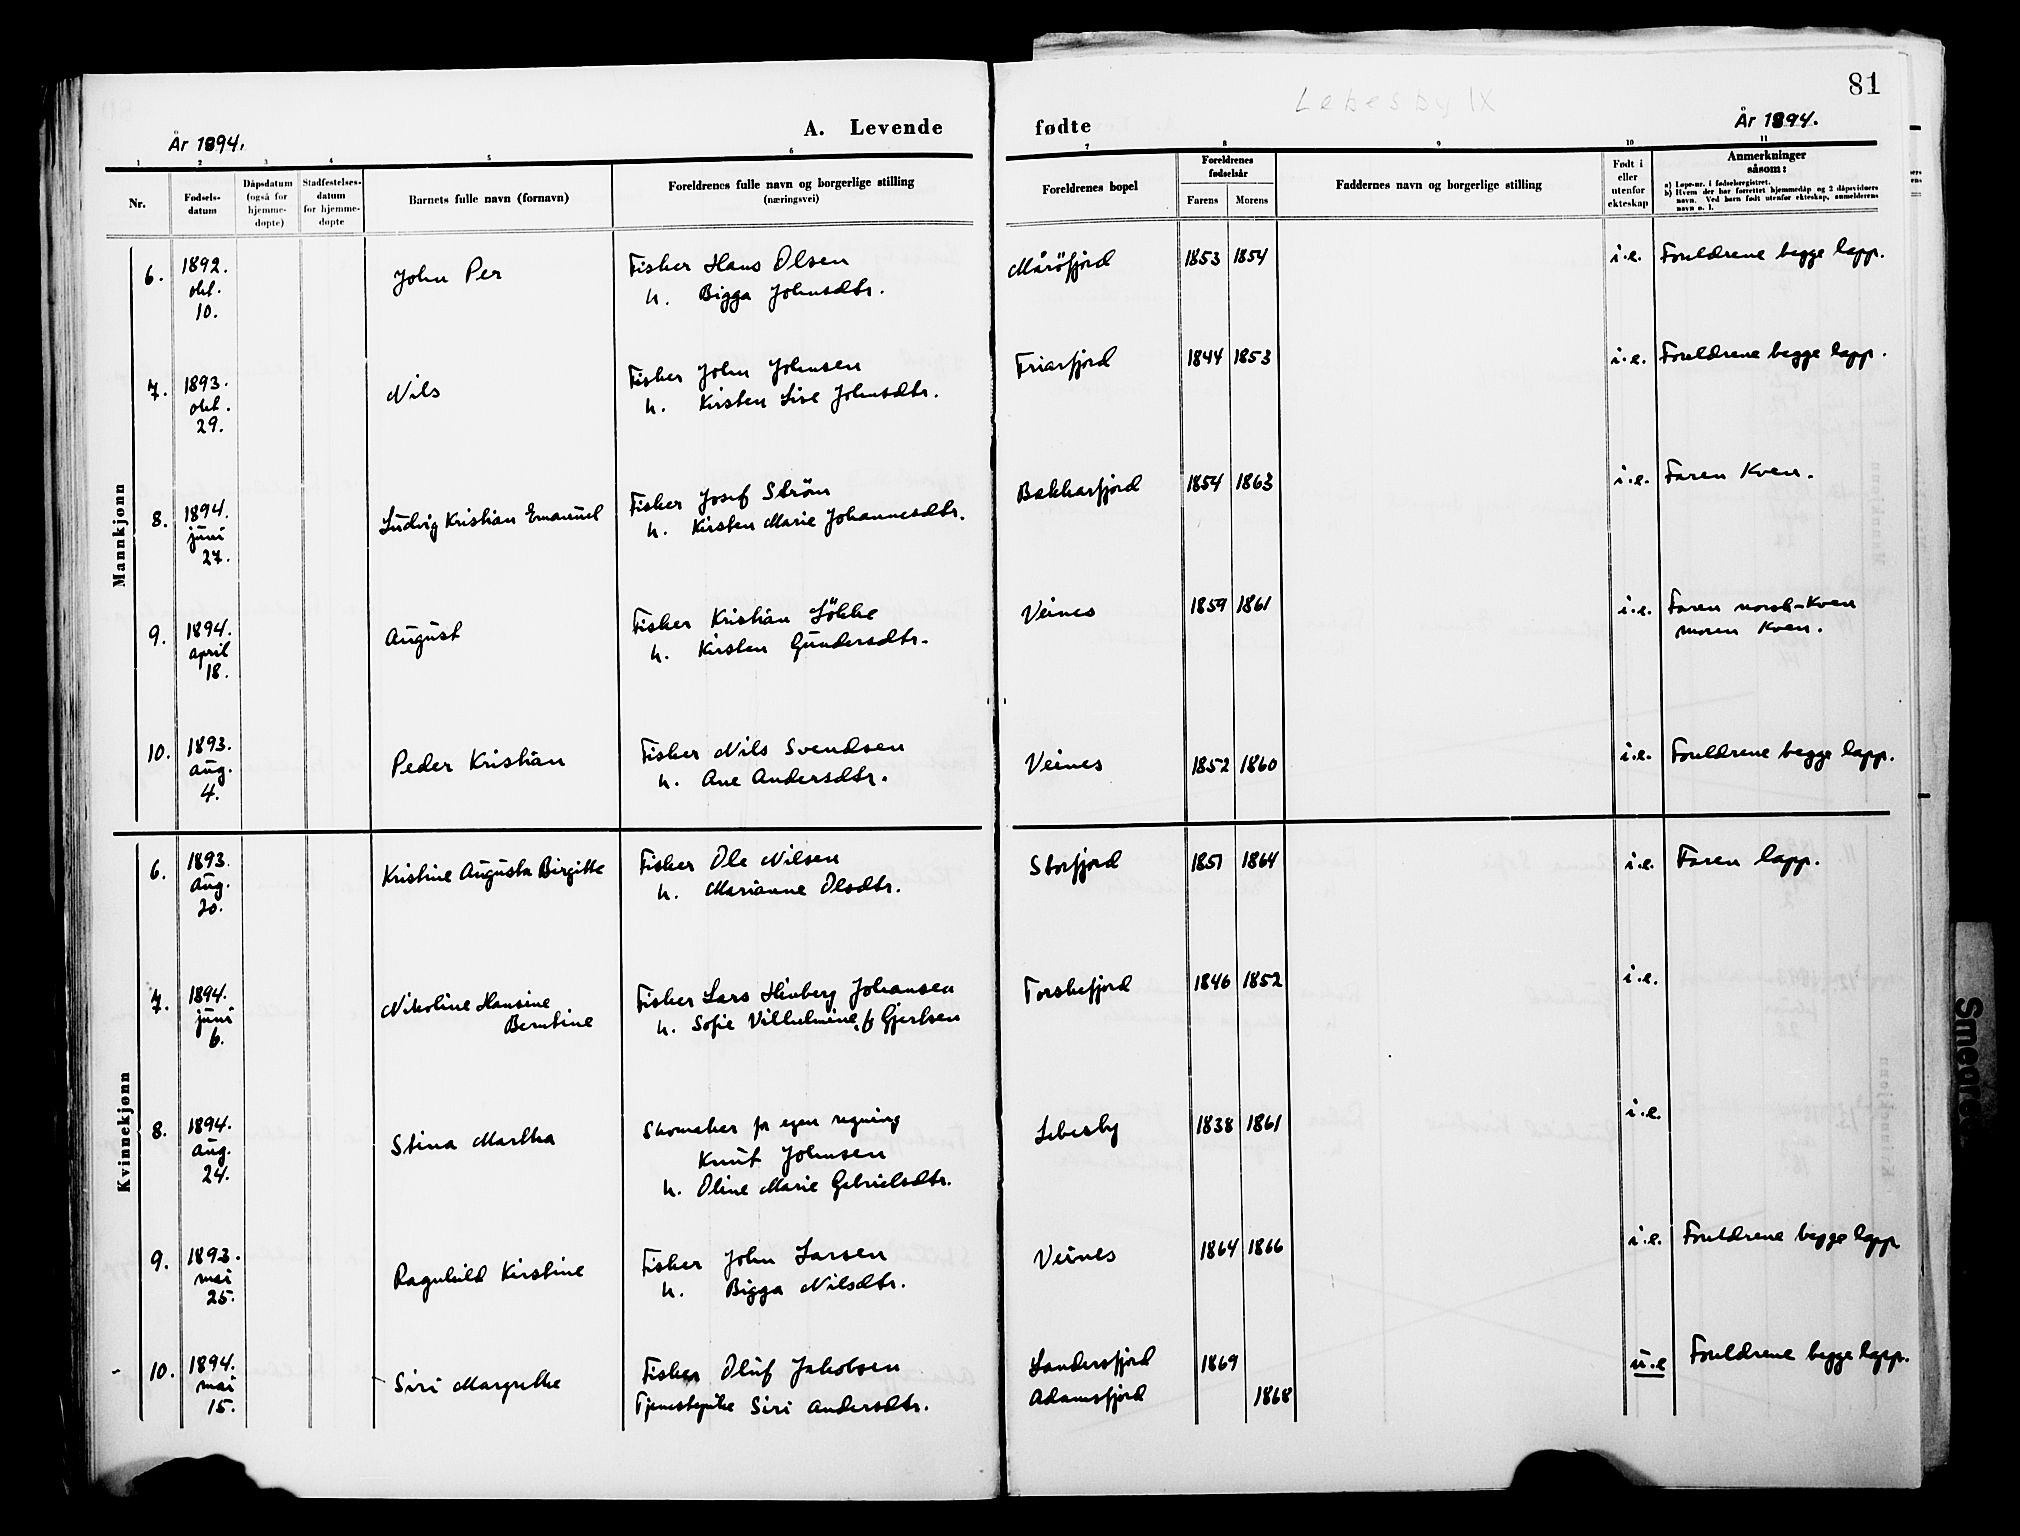 81
Lebesby IX
År 1894.
A. Levende
fødte
År 1894.
1 2 3 4 5 6 7 8 9 10 11
Nr.
Fødsels-
datum
Dåpsdatum
(også for
hjemme-
døpte)
Stadfestelses-
datum
for hjemme-
døpte
Barnets fulle navn (fornavn)
Foreldrenes fulle navn og borgerlige stilling
(næringsvei)
Foreldrenes bopel
Foreldrenes
fødselsår
Farens Morens
Faddernes navn og borgerlige stilling
Født i
eller
utenfor
ekteskap
Anmerkninger
såsom:
a) Løpe-nr. i fødselsregistret.
b) Hvem der har forrettet hjemmedåp og 2 dåpsvidners
navn. Ved barn født utenfor ekteskap, anmelderens
navn o. l.
Mannkjønn
6. 1892. okt. 10. John Per Fisker Hans Olsen Mårøfjord 1853 1854 i.e. Foreldrene begge lapp.
h. Bigga Johnsdtr.
7. 1893. okt. 29. Nils Fisker John Johnsen Friarfjord 1844 1853 i.e. Foreldrene begge lapp.
h. Kirsten Lise Johnsdtr.
8. 1894. juni 27. Ludvig Kristian Emanuel Fisker Josef Strøm Bekkarfjord 1854 1863 i.e. Faren Kven.
h. Kirsten Marie Johannesdtr.
9. 1894. april 18. August Fisker Kristian Løkke Veines 1859 1861 i.e. Faren norsk-Kven
h. Kirsten Gundersdtr. moren Kven.
10. 1893. aug. 4. Peder Kristian Fisker Nils Svendsen Veines 1852 1860 i.e. Foreldrene begge lapp.
h. Ane Andersdtr.
Kvinnekjønn
6. 1893. aug. 20. Kristine Augusta Birgitte Fisker Ole Nilsen Storfjord 1851 1864 i.e. Faren lapp.
h. Marianne Olsdtr.
7. 1894. juni 6. Nikoline Hansine Fisker Lars Hinberg Johansen Torskefjord 1846 1852 i.e.
Berntine h. Sofie Vilhelmine f. Gjertsen
8. 1894. aug. 24. Stina Martha Skomaker for egen regning Lebesby 1838 1861 i.e.
Knut Johnsen
h. Oline Marie Gabrielsdtr.
9. 1893. mai 25. Ragnhild Kirstine Fisker John Larsen Veines 1864 1866 i.e. Foreldrene begge lapp
h. Bigga Nilsdtr.
10. 1894. mai 15. Siri Margrethe Fisker Oluf Jakobsen Landersfjord 1869 u.e Foreldrene begge lapp.
Tjenestepike Siri Andersdtr. Adamsfjord 1868